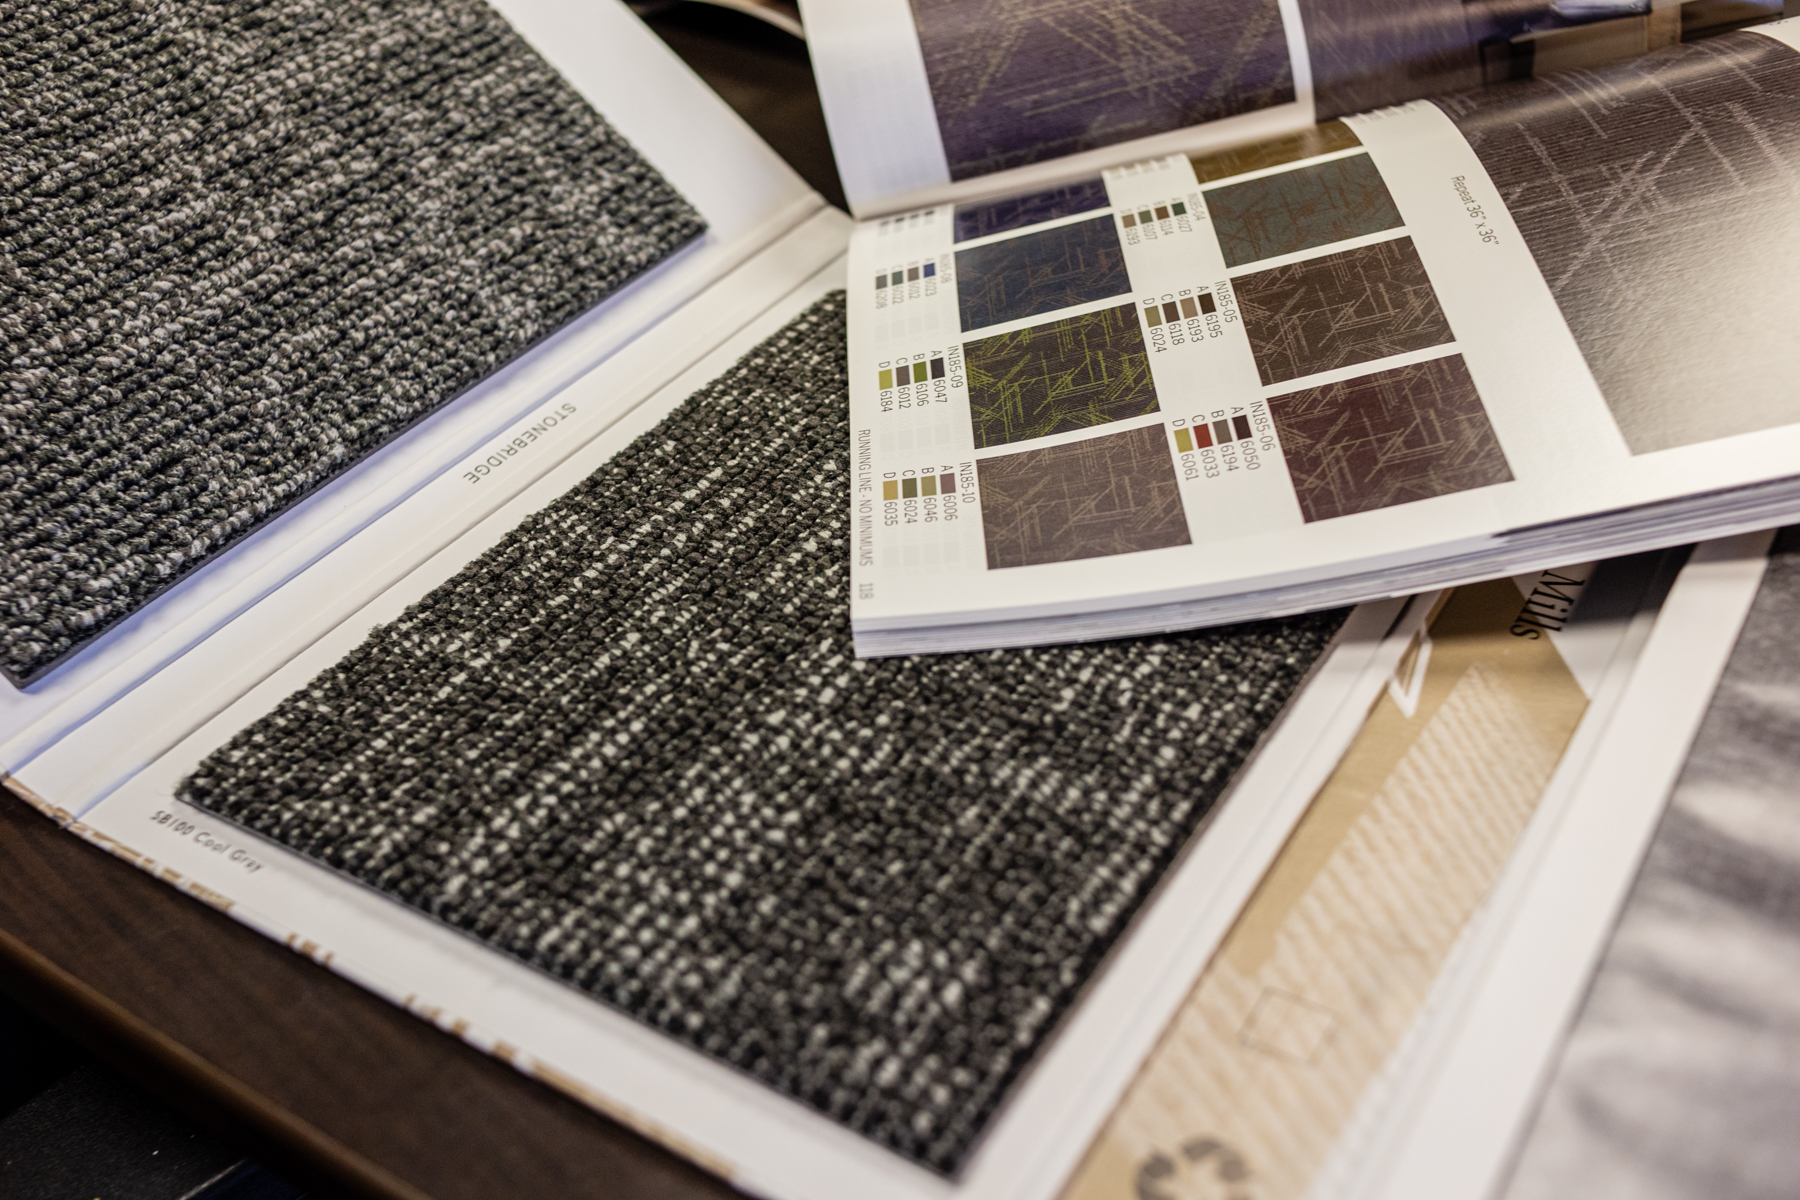 STONEBRIDGE
SB100 Cool Gray
Repeat 36" x 36"
IN185-04
A 6027
B 6114
C 6107
D 6093
IN185-05
A 6195
B 6193
C 6118
D 6024
IN185-06
A 6050
B 6194
C 6033
D 6061
IN185-08
A 6023
B 6012
C 6022
D 6208
IN185-09
A 6047
B 6106
C 6012
D 6184
IN185-10
A 6006
B 6046
C 6024
D 6035
RUNNING LINE - NO MINIMUMS 118
Mills